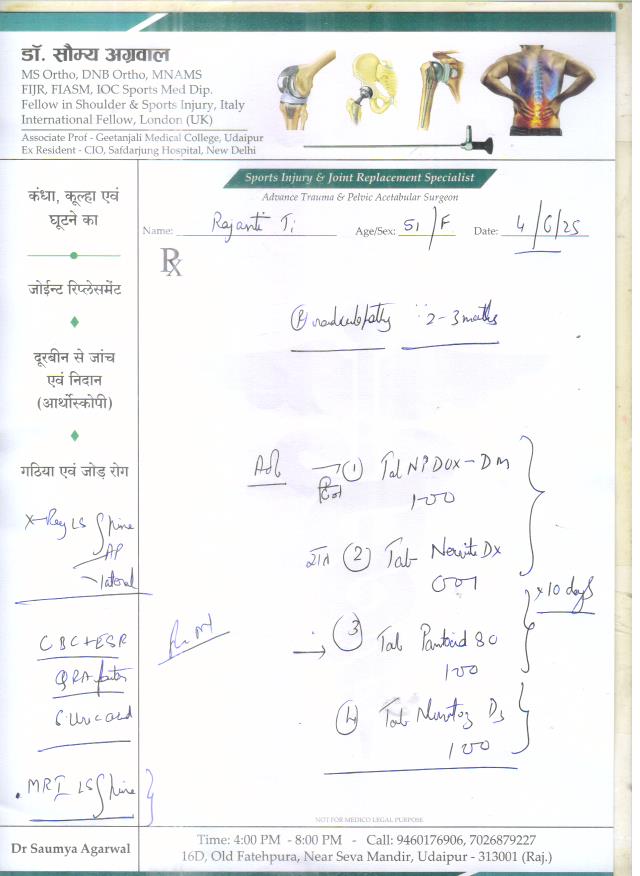 डॉ. सौम्य अग्रवाल
MS Ortho, DNB Ortho, MNAMS
FIJR, FIASM, IOC Sports Med Dip.
Fellow in Shoulder & Sports Injury, Italy
International Fellow, London (UK)
Associate Prof - Geetanjali Medical College, Udaipur
Ex Resident - CIO, Safdarjung Hospital, New Delhi
Sports Injury & Joint Replacement Specialist
Advance Trauma & Pelvic Acetabular Surgeon
Name: Rajanti Ji Age/Sex: 51/F Date: 4/6/25
Rx
कंधा, कूल्हा एवं
घूटने का
जोईन्ट रिप्लेसमेंट
दूरबीन से जांच
एवं निदान
(आर्थोस्कोपी)
गठिया एवं जोड़ रोग
X-Ray LS Spine
AP
lateral
CBC + ESR
S. Uric acid
MRI LS Spine
radiculopathy 2-3 months
Adv
दिन 1 Tab DM
1-0-0
रात 2 Tab Dx
0 0 1
3 Tab 80
1 0 0
4 Tab
1 0 0
x 10 days
NOT FOR MEDICO LEGAL PURPOSE
Dr Saumya Agarwal
Time: 4:00 PM - 8:00 PM - Call: 9460176906, 7026879227
16D, Old Fatehpura, Near Seva Mandir, Udaipur - 313001 (Raj.)